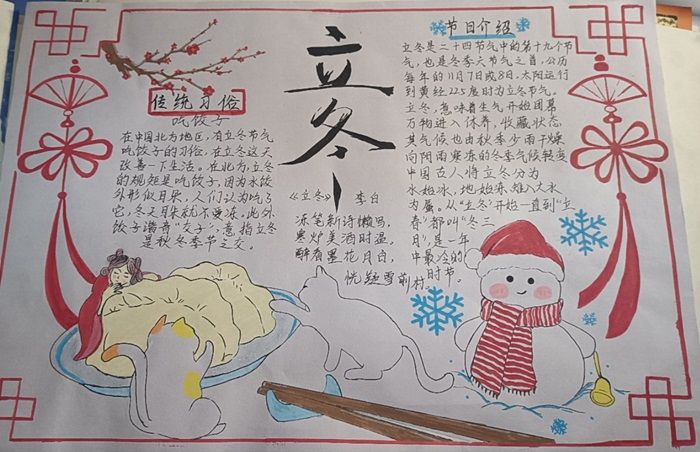 立冬
传统习俗
吃饺子
在中国北方地区,有立冬节气
吃饺子的习俗,在立冬这天
改善一下生活。在北方,立冬
的规矩是吃饺子,因为水饺
外形似耳朵,人们认为吃了
它,冬天耳朵就不受冻。此外
饺子谐音“交子”,意指立冬
是秋冬季节之交。
《立冬》 李白
冻笔新诗懒写,
寒炉美酒时温,
醉看墨花月白,
恍疑雪前村。
节日介绍
立冬是二十四节气中的第十九个节
气,也是冬季六节气之首,公历
每年的11月7日或8日,太阳运行
到黄经225度时为立冬节气。
立冬,意味着生气开始闭蓄
万物进入休养,收藏状态
其气候也由秋季少雨干燥
向阴雨寒冻的冬季气候转变
中国古人将立冬分为
水始冰,地始冻,雉入大水
为蜃。从“立冬”开始一直到“立
春”都叫“冬三
月”,是一年
中最冷的
时节。